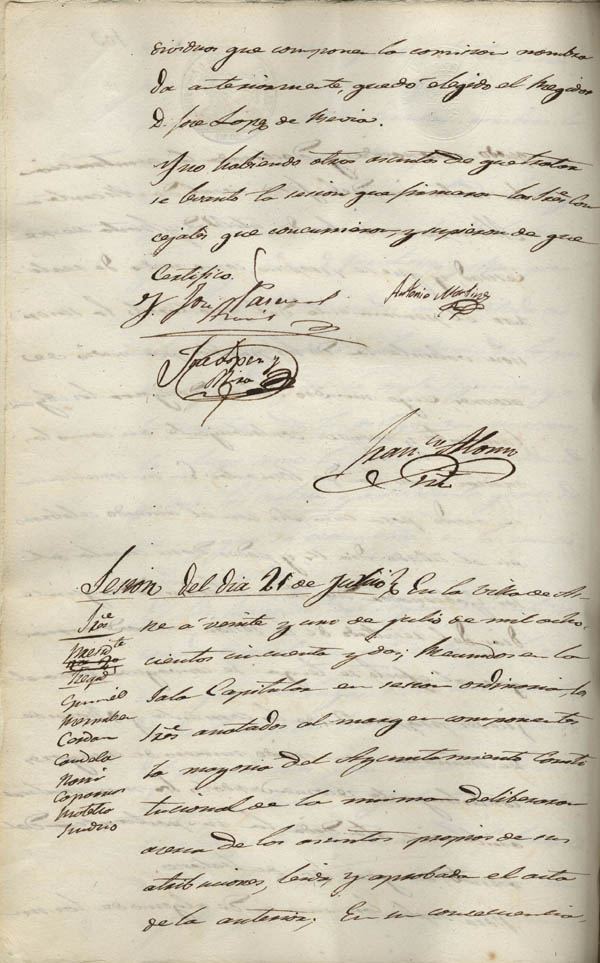 dividuos que componen la comision nombra
da anteriormente, quedó elegido el Regidor
D. José Lopez de
Y no habiendo otros asuntos de que tratar
se levantó la sesion que firmaron los Sres. Con
cejales que concurrieron, y supieron de que
Certifico.
Antonio Martinez
José Lopez y
Franco. Alonso
Sesion del dia 21 de Julio En la Villa de As-
pe á veinte y uno de julio de mil ocho-
cientos cincuenta y dos; Reunidos en la
Sala Capitular en sesion ordinaria los
Sres. anotados al margen componentes
la mayoria del Ayuntamiento Consti
tucional de la misma deliberaron
acerca de los asuntos propios de sus
atribuciones, leida, y aprobada el acta
de la anterior; En su consecuencia,
Sres.
Preste.
Regs.
Cerdan
Candela